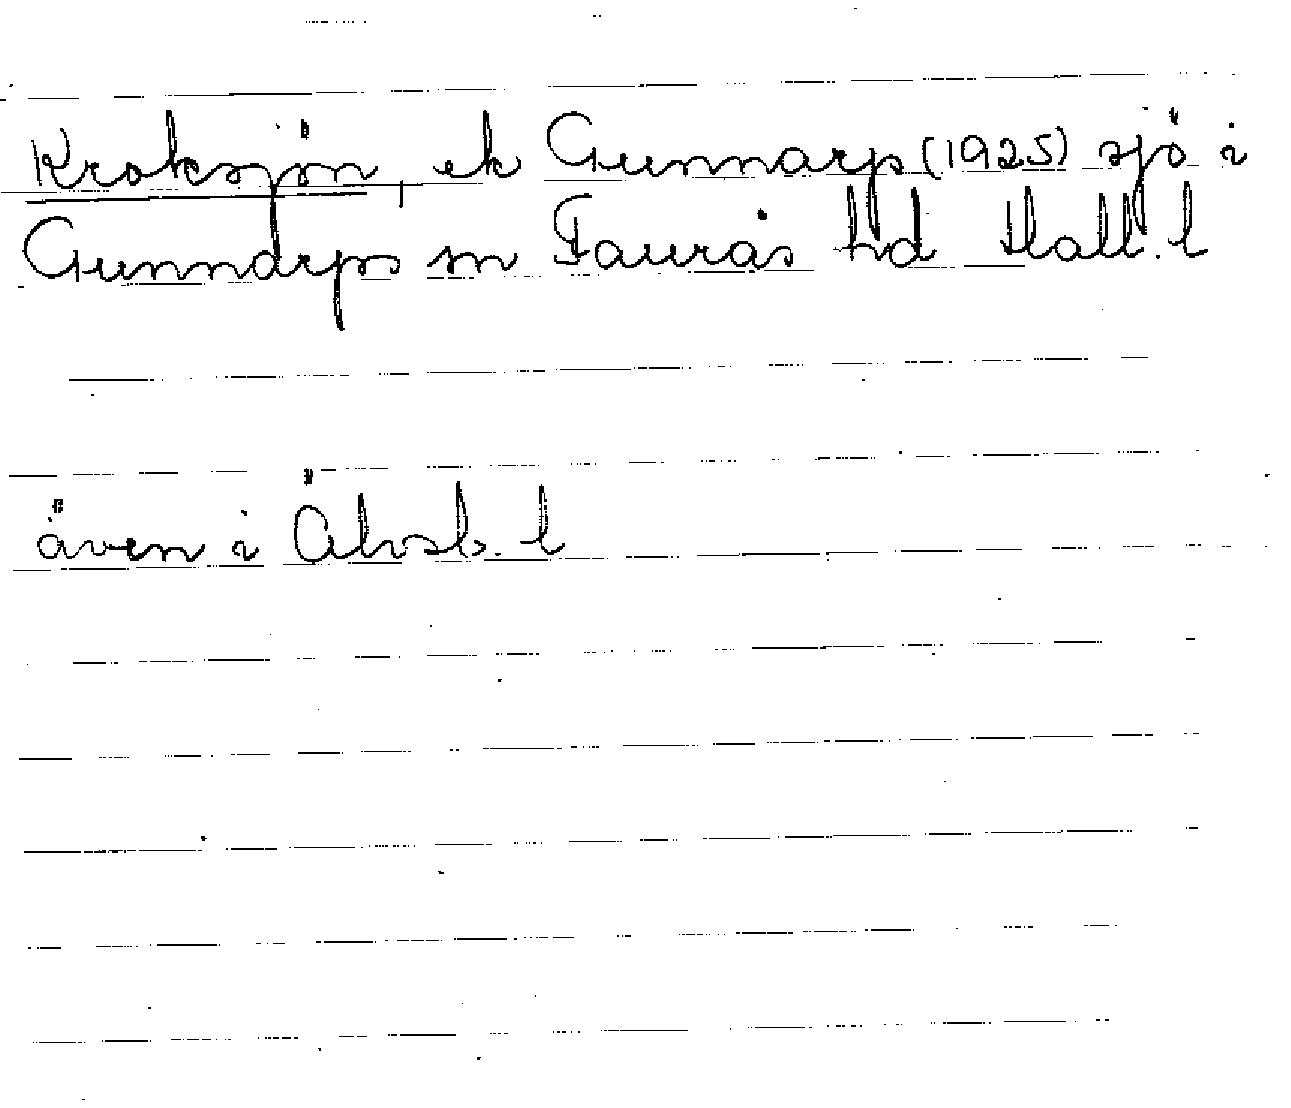 Kroksjön, ek Gunnarp (1925) sjö i
Gunnarps sn Faurås hd Hall. l
även i Älvsb. l